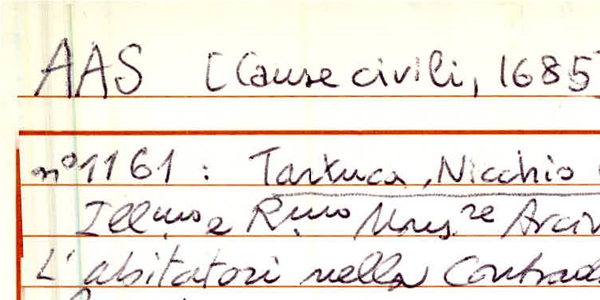 AAS [Cause civili, 1685]
n° 1161 : Tartuca, Nicchio
Ill.mo e R.mo Mons.re Arciv
L'abitatori nella Contrad